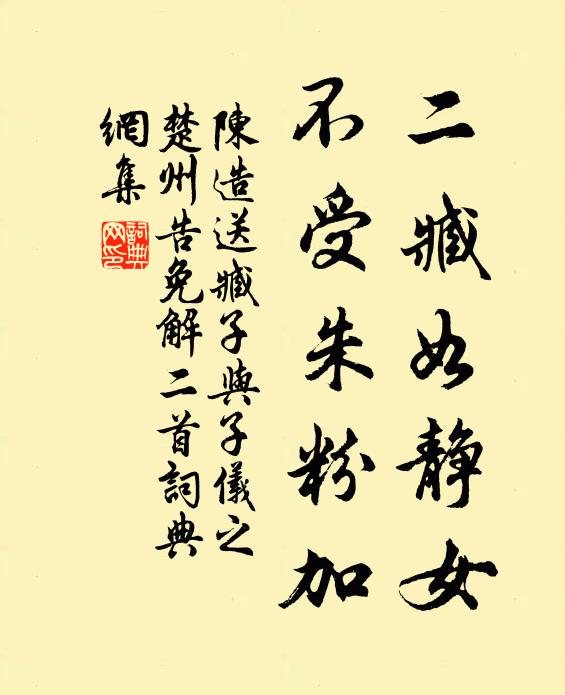 二臧如静女
不受朱粉加
陳造送臧子與子儀之
楚州告免解二首詞典
網集
詞典
网印